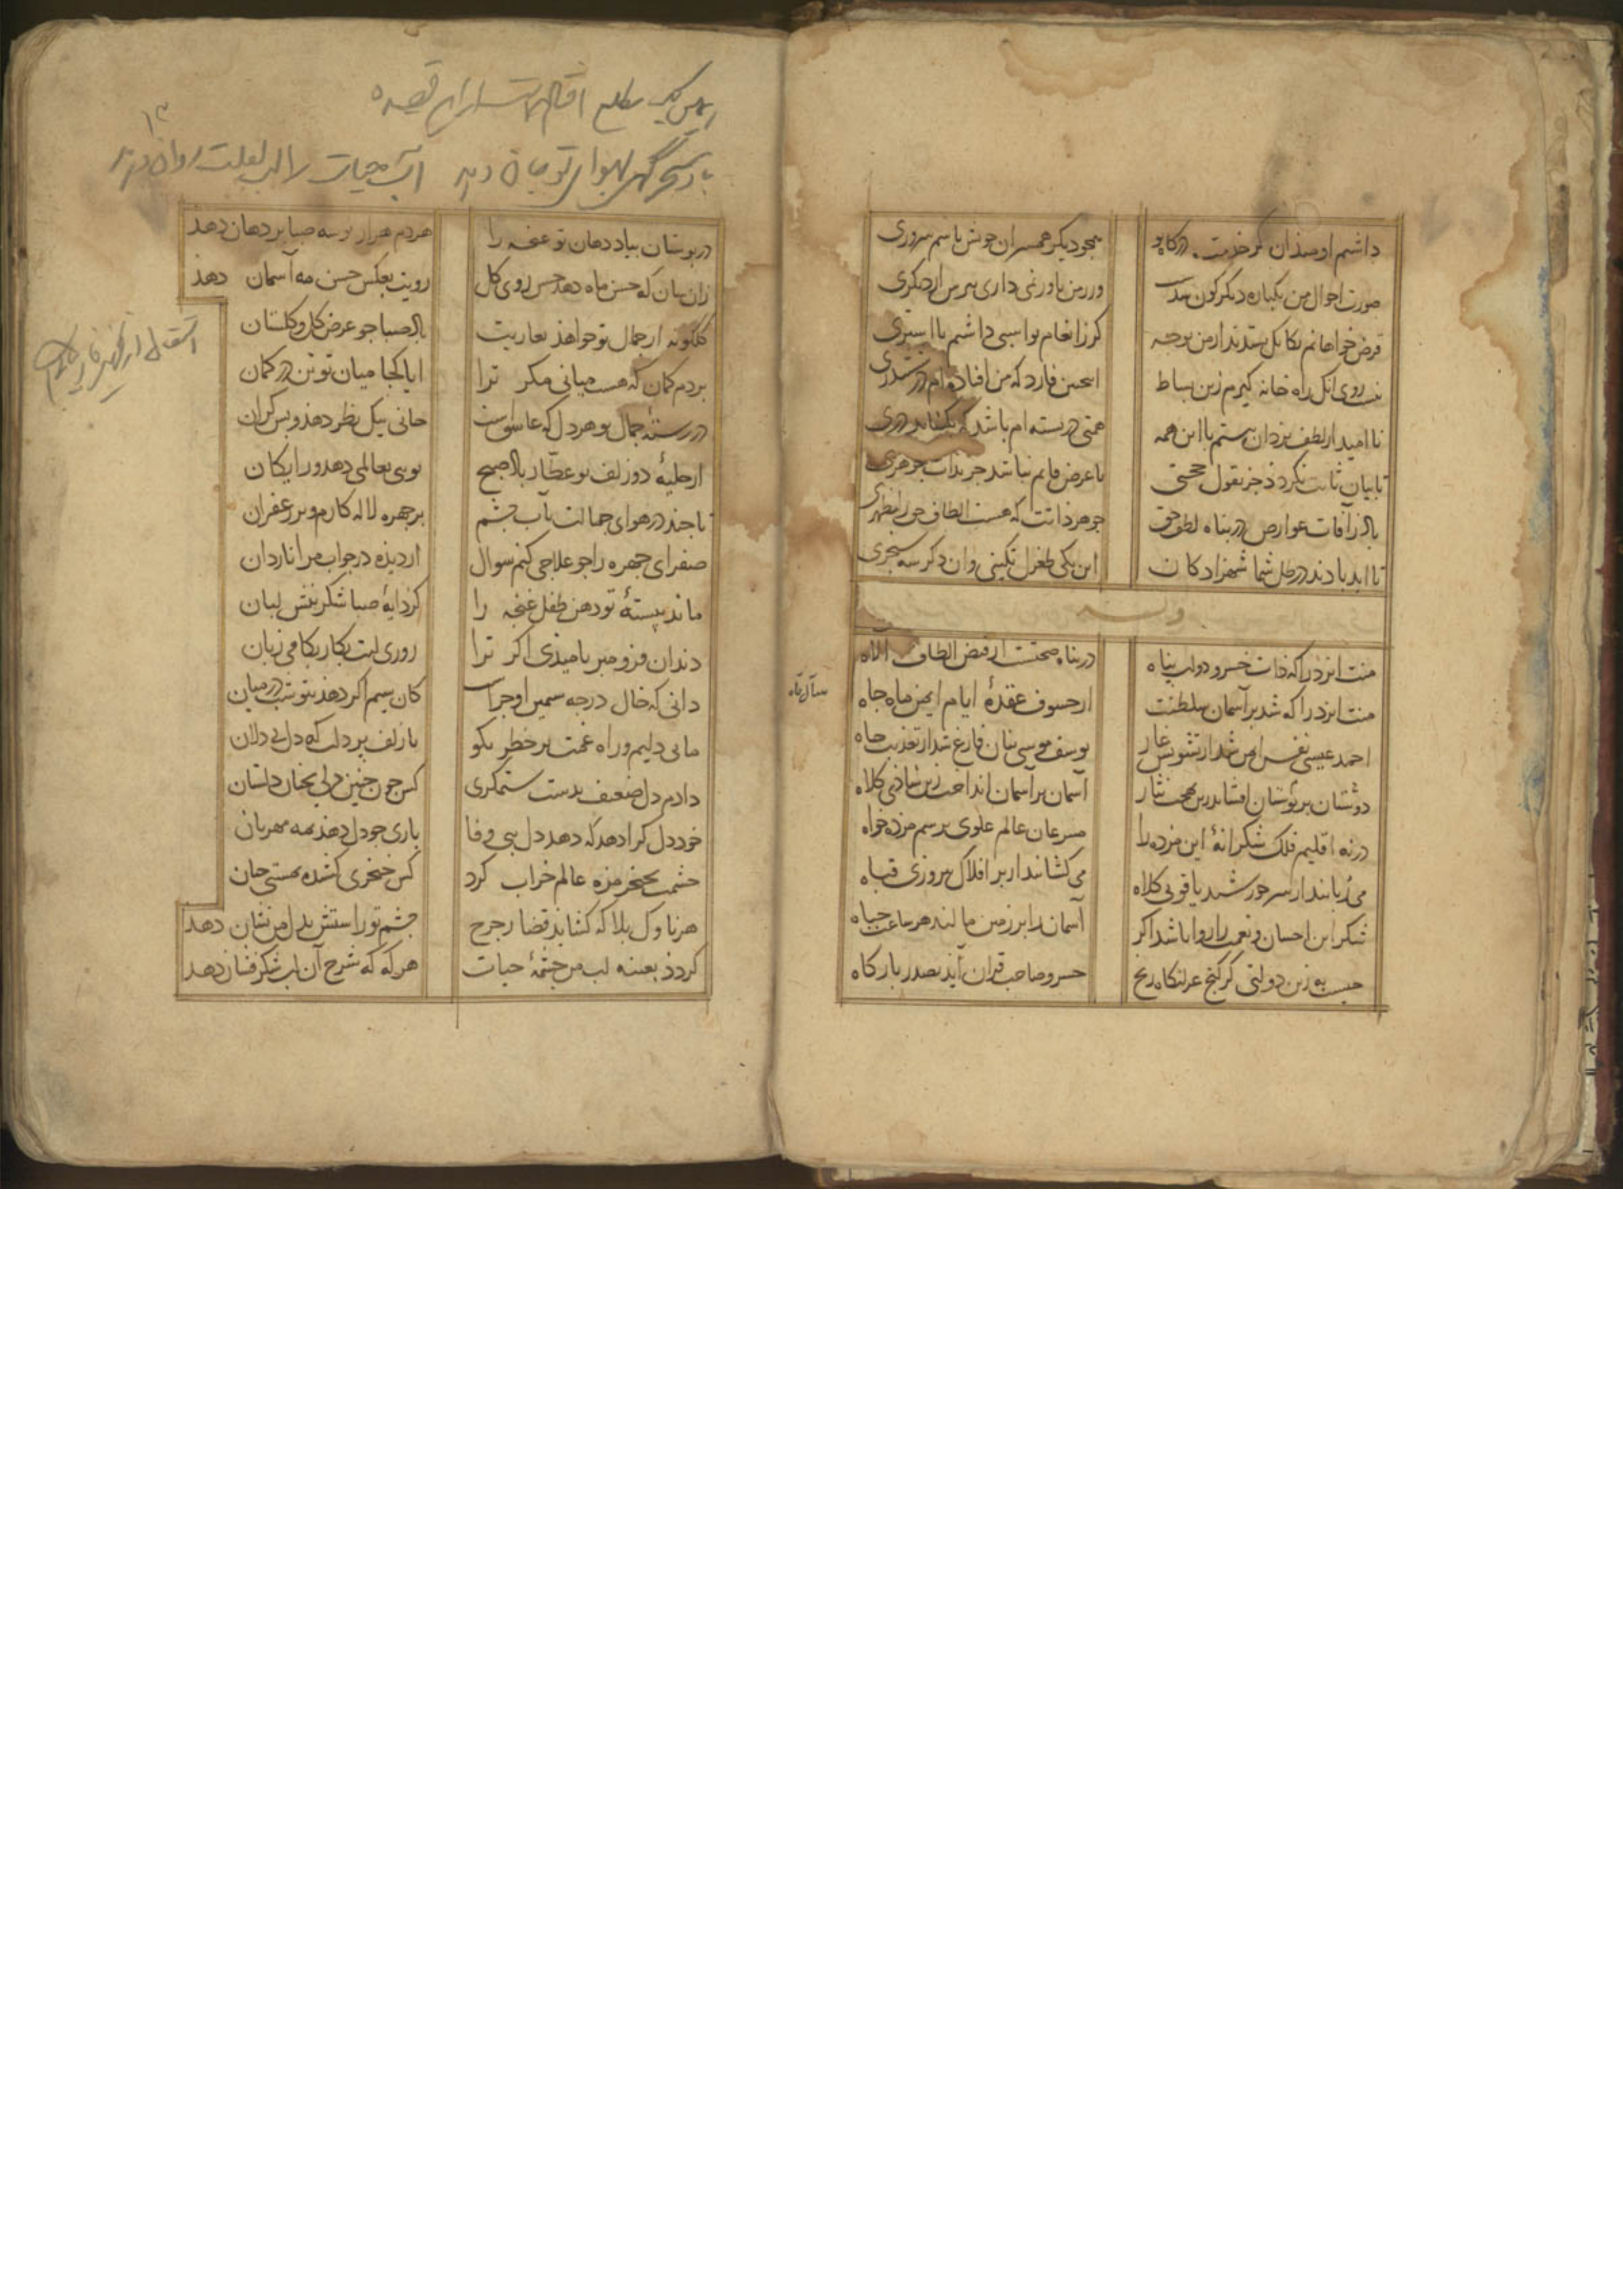 داشتم اومیذ آن کز خذمت درکاه تو
همچو دیکر همسران خویش باشم سروری
صورت احوال من یکباره دیکرکون شدست
ور ز من باور نمی داری ببرس از دیکری
قرض خواهانم بکل بستدند از من بوجه
کر ز انعام تو اسبی داشتم یا استری
نیست روی آنک راه خانه کیرم زین بساط
اینچنین که من افتاده ام در ششدری
تا امید از لطف یزدان بستم با این همه
همتی دربسته ام باشد که بکشاید دری
تا بیان ثابت نکردذ جز بقول حجتی
تا عرض قایم نباشد جز بذات جوهری
باذ ز آفات عوارض در پناه لطف حق
جوهر ذاتت که هست الطاف حق را مظهری
تا ابد بادند در ظل شما شهزادکان
این یکی طغرل تکینی وان دکر سنجری
وله
منت ایزد را که ذات خسرو دولت پناه
در پناه صحتست از فیض الطاف الاه
منت ایزد را که شد بر آسمان سلطنت
از خسوف عقدهٔ ایام ایمن ماه جاه
احمد عیسی نفس ایمن شد از تشویش غار
یوسف موسی بنان فارغ شد از تعذیب چاه
دوستان بر بوستان افشاند زین بهجت نثار
آسمان بر آسمان انداخت زین شاذی کلاه
در نه اقلیم فلک شکرانهٔ این مژده را
مسرعان عالم علوی برسم مژده خواه
می ربانند از سر خورشید یاقوتی کلاه
می کشانند از بر افلاک پیروزی قباه
شکر این احسان و نعمت را روا باشد اکر
آسمان را بر زمین مالند هر ساعت جباه
چیست به زین دولتی کز کنج عزلتکاه رنج
خسرو صاحب قران آید بصدر بارکاه
مطلع این قصیده
باد سحرگهی بهوای تو جان دهد
آب حیات را لب لعلت روان دهد
در بوستان بیاد دهان تو غنچه را
هر دم هزار بوسه صبا بر دهان دهد
زان سان که حسن ماه دهد حسن روی کل
رویت بعکس حسن مه آسمان دهذ
کلکونه از جمال تو خواهذ بعاریت
باذ صبا جو عرض کل و کلستان
بردم کمان که هست میانی مکر ترا
اما کجا میان تو تن در کمان
در رستهٔ جمال تو هر دل که عاشق است
جانی بیک نظر دهذ و بس کران
از حلیهٔ دو زلف تو عطار باذ صبح
بویی بعالمی دهد و رایکان
تا چند در هوای جمالت بآب جشم
بر جهره لاله کارم و بر زعفران
صفرای جهره را جو علاجی کنم سوال
از دیذه در جواب مرا ناردان
ماند ببستهٔ تو دهن طفل غنجه را
کر دایهٔ صبا شکرینش لبان
دندان فرو مبر بامیذی اکر ترا
روزی لبت بکار بکامی زبان
دانی که خال در جه سیمین او جراست
کان سیم اکر دهذ بتو شب در میان
مایی دلیم و راه غمت بر خطر بکو
با زلف پر دلت که دل بی دلان
دادم دل ضعیف بدست ستمکری
کس جون جنین دلی بجنان دلستان
خود دل کرا دهد که دهد دل ببی وفا
باری جو دل دهذ بمه مهربان
جشمت بخنجر مژه عالم خراب کرد
کس خنجری کشده بمستی جان
هر ناوک بلا که کشایذ قضا ز جرخ
جشم تو راستش بدل من نشان دهد
کردذ بعینه لب من جشمهٔ حیات
هر که که شرح آن لب شکرفشان دهد